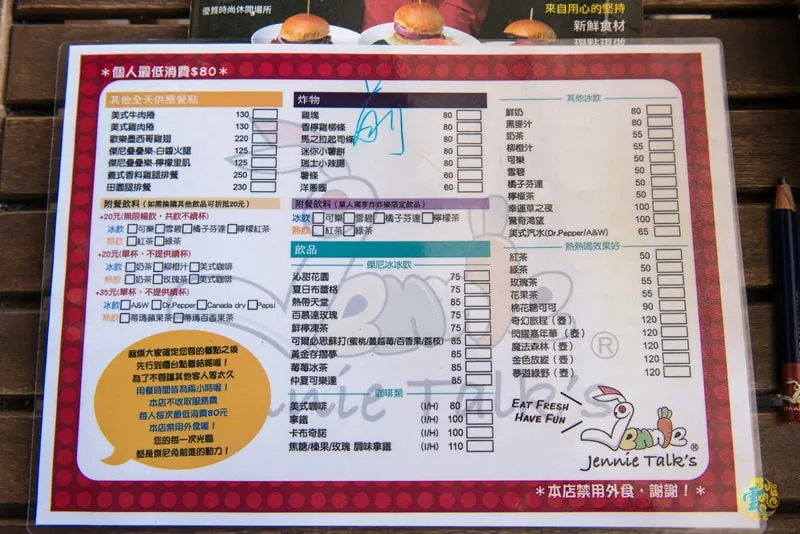 優質時尚休閒場所
來自用心的堅持
新鮮食材
現點現做
*個人最低消費$80*
其他全天供應餐點
美式牛肉捲 130
美式雞肉捲 130
歡樂墨西哥雞翅 220
傑尼疊疊樂-白醬火腿 125
傑尼疊疊樂-檸檬里肌 125
義式香料雞腿排餐 250
田園腿排餐 230
附餐飲料(如需換購其他飲品可折抵20元)
+20元(無限暢飲，共飲不續杯)
冰飲 可樂 雪碧 橘子芬達 檸檬紅茶
熱飲 紅茶 綠茶
+20元(單杯，不提供續杯)
冰飲 奶茶 柳橙汁 美式咖啡
熱飲 奶茶 玫瑰茶 美式咖啡
+35元(單杯，不提供續杯)
冰飲 A&W Dr.Pepper Canada dry Pepsi
熱飲 蒂瑪蘋果茶 蒂瑪百香果茶
麻煩大家確定您要的餐點之後
先行到櫃台點餐結帳喔！
為了不要讓其他客人等太久
用餐時間皆為兩小時喔！
本店不收取服務費
每人每次最低消費80元
本店禁用外食喔！
您的每一次光臨
都是傑尼兔前進的動力！
炸物
雞塊 80
香檸雞柳條 80
馬之拉起司條 80
迷你小薯餅 80
瑞士小辣腸 80
薯條 60
洋蔥圈 60
附餐飲料(單人獨享炸炸樂限定飲品)
冰飲 可樂 雪碧 橘子芬達 檸檬茶
熱飲 紅茶 綠茶
飲品
傑尼冰冰飲
沁甜花園 75
夏日布蕾格 75
熱帶天堂 85
百慕達玫瑰 75
鮮檸凍茶 85
可爾必思蘇打(蜜桃/蔓越莓/百香果/荔枝) 85
黃金存摺夢 85
莓莓冰茶 85
仲夏可樂達 85
咖啡類
美式咖啡 (I/H) 80
拿鐵 (I/H) 100
卡布奇諾 (I/H) 100
焦糖/榛果/玫瑰 調味拿鐵 (I/H) 110
其他冰飲
鮮奶 80
黑麥汁 80
奶茶 55
柳橙汁 55
可樂 50
雪碧 50
橘子芬達 50
檸檬茶 50
幸運草之夜 100
驚奇渴望 100
美式汽水(Dr.Pepper/A&W) 65
熱熱喝效果好
紅茶 50
綠茶 50
玫瑰茶 55
花果茶 55
棉花糖可可 90
奇幻旅程（壺） 120
閃耀嘉年華（壺） 120
魔法森林（壺） 120
金色放縱（壺） 120
夢遊綠野（壺） 120
®
EAT FRESH
HAVE FUN
Jennie
Jennie Talk's
*本店禁用外食，謝謝！*